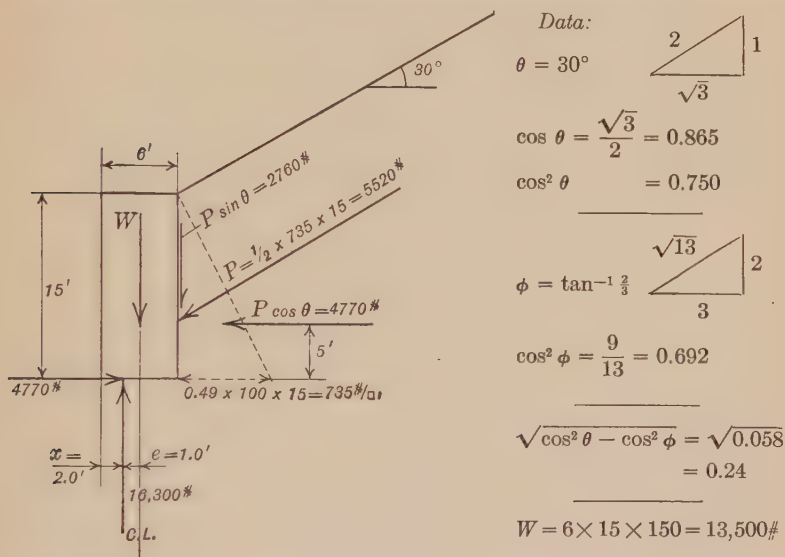 30°
6'
P sin θ = 2760#
P = ½ x 735 x 15 = 5520#
W
15'
P cos θ = 4770#
5'
4770#
0.49 x 100 x 15 = 735#/□'
x = 2.0'
e = 1.0'
16,300#
C.L.
Data:
θ = 30°
2
1
√3
cos θ = √3/2 = 0.865
cos² θ = 0.750
√13
2
3
φ = tan⁻¹ 2/3
cos² φ = 9/13 = 0.692
√(cos² θ − cos² φ) = √0.058
= 0.24
W = 6 × 15 × 150 = 13,500#